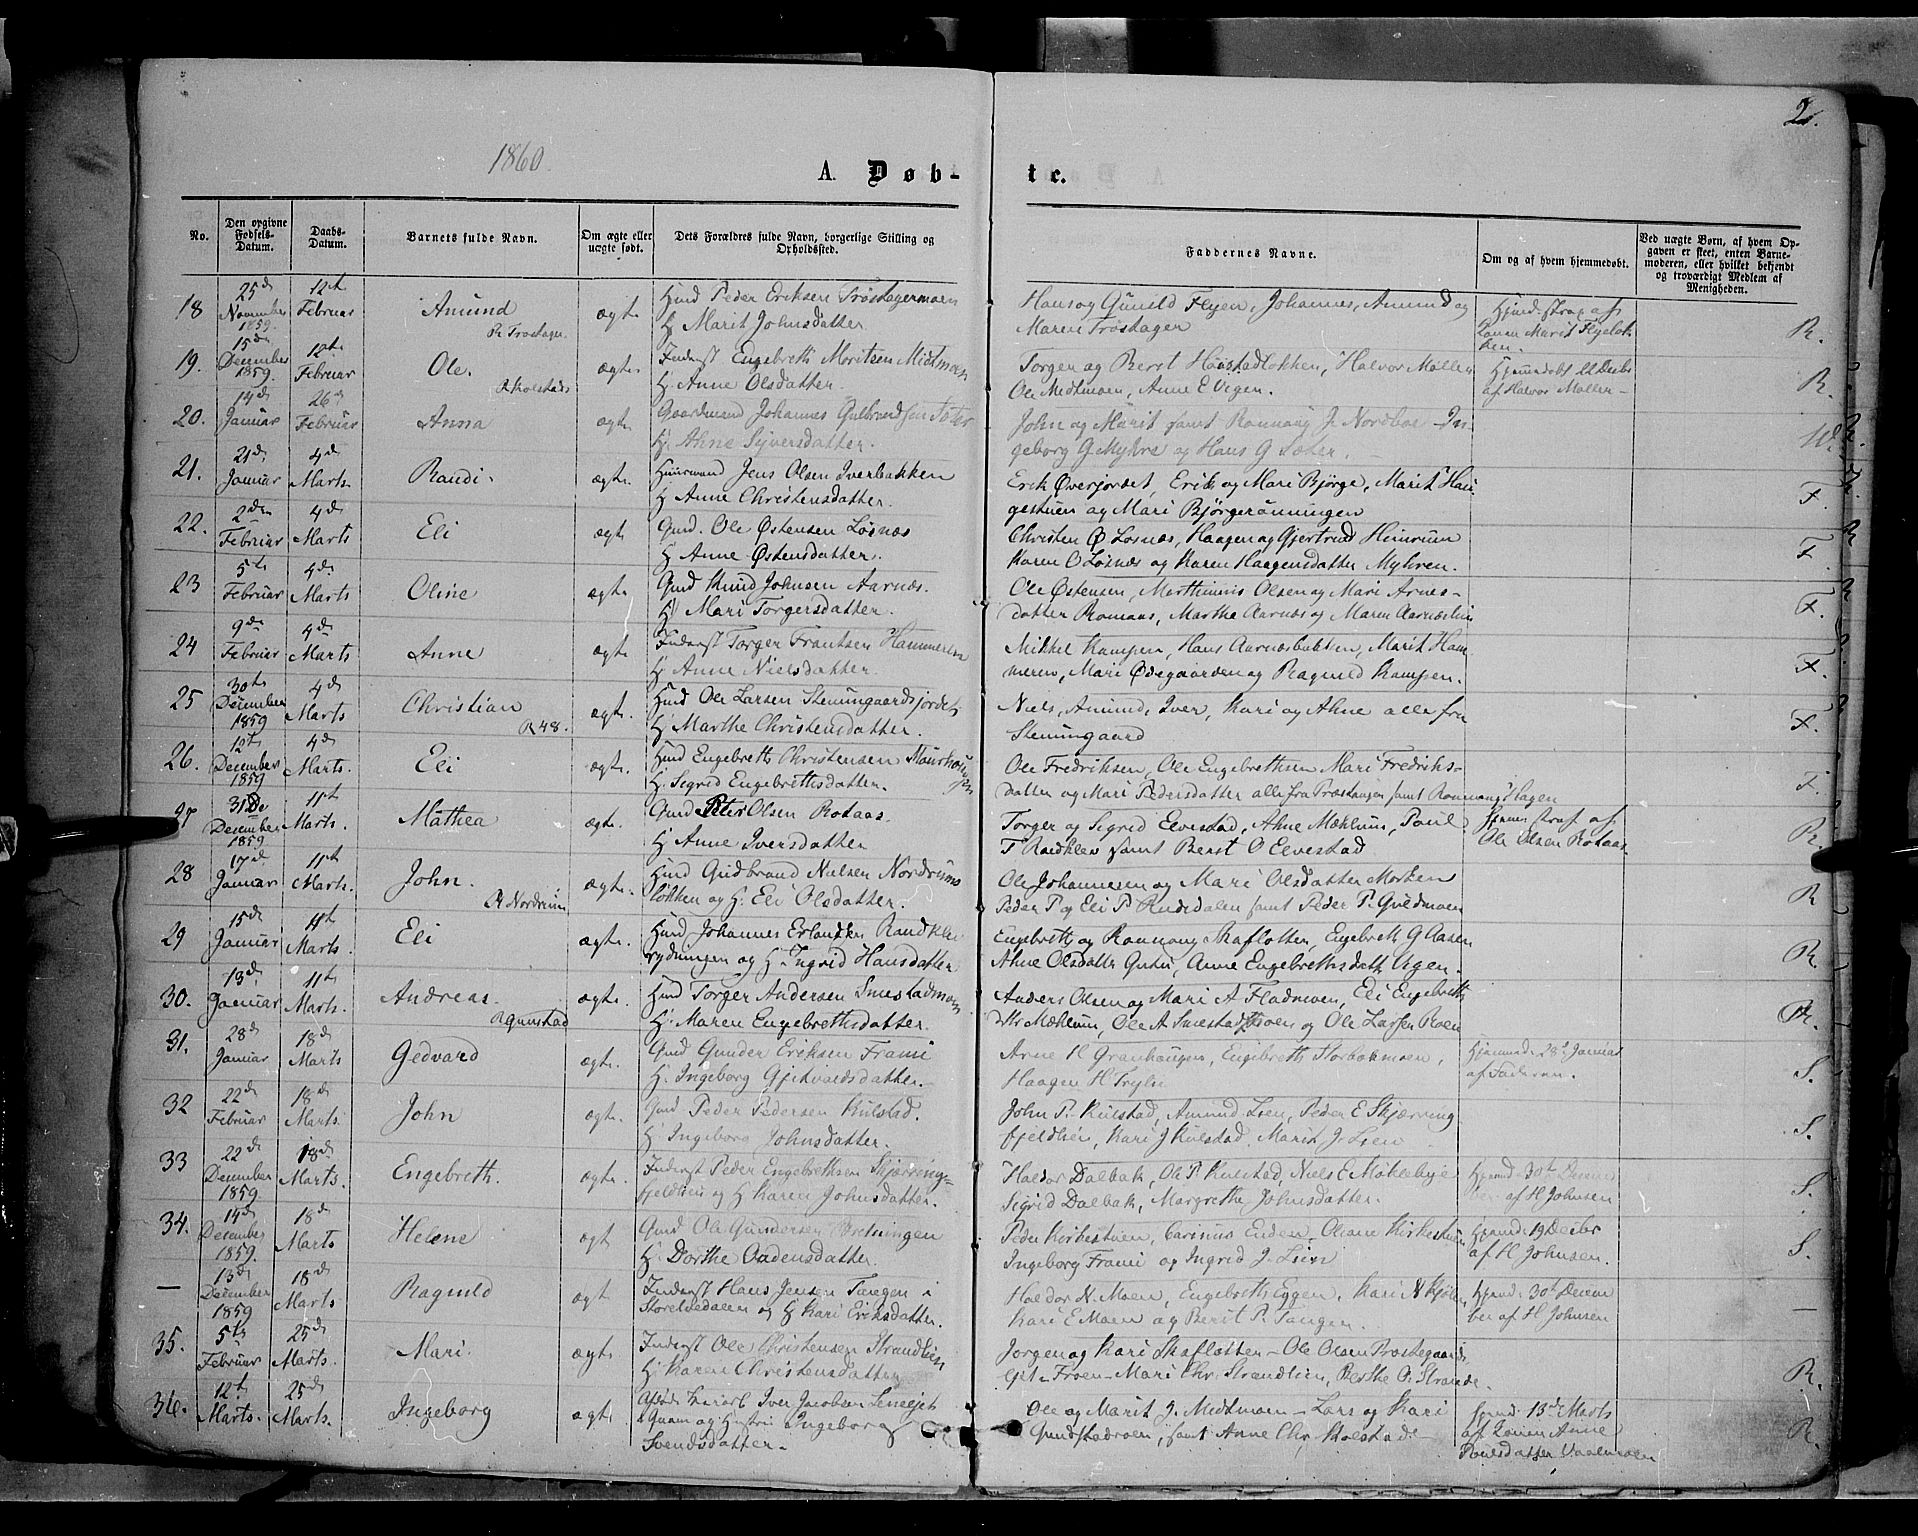 2.
1860.
A. Døb-
te.
No.
Den opgivne Fødsels-Datum.
Daabs-Datum.
Barnets fulde Navn.
Om ægte eller uægte født.
Dets Forældres fulde Navn, borgerlige Stilling og Opholdssted.
Faddernes Navne.
Om og af hvem hjemmedøbt.
Ved uægte Børn, af hvem Opgaven er skeet, enten Barnemoderen, eller hvilket bekjendt og troværdigt Medlem af Menigheden.
18 25de November 1859. 12te Februar Amund ægte Huusmd Peder Eriksen Trøstagermoen
H Marit Johnsdatter.
Hans og Gunild Flyen, Johannes, Amund og
Maren Trøstager
R.
19. 15de December 1859. 12te Februar Ole. ægte Inderst Engebreth Moritsen Midtmoen
H. Anne Olsdatter.
Torger og Beret Haastadløkken, Halvor Møller
Ole Midtmoen, Anne E Vigen.
af Halvor Møller
R.
20. 14de Januar 26de Februar Anna ægte Gaardmand Johannes
H. Ahne Syversdatter.
John og Marit samt Rønnaug J. Nordboe In-
geborg G Myhre og Hans G Sæter.
21. 21de Januar 4de Marts Randi ægte Huusmand Jens Olsen Iverbakken
H Anne Christensdatter.
Erik Øverjordet, Erik og Mari Bjørge, Marit Hau
gestuen og Mari Bjørgerønningen
F.
22. 2den Februar 4de Marts Eli ægte Gmd. Ole Østensen Løsnæs
H Anne Østensdatter.
Christen Ø Løsnæs, Haagen og Gjertrud
Karen O Løsnæs og Karen Haagensdatter Myhren.
F.
23 5te Februar 4de Marts Oline ægte Gmd Knud Johnsen Aarnæs.
H Mari Torgersdatter.
Ole Østensen, Marthinus Olsen og Mari Arnes-
datter Romaas, Marthe Aarnæs og Maren
F.
24 9de Februar 4de Marts Anne ægte Inderst Torger Frantsen Hammeren
H Anne Nielsdatter.
Mikkel Kampen, Hans Aarnæsbakken, Marit Ham
meren, Mari Ødegaarden og Ragnild Kampen.
F.
25 30te December 1859 4de Marts Christian R 48. ægte Hmd Ole Larsen Stenumgaardsjordet
H Marthe Christensdatter.
Niels, Amund, Iver, Kari og Ahne alle fra
Stenumgaard
F.
26. 12te December 1859 4de Marts. Eli ægte Hmd Engebreth Christensen
H. Sigrid Engebrethsdatter.
Ole Fredriksen, Ole Engebrethsen Mari Fredriks-
datter og Mari Pedersdatter alle fra Præstangen samt Rønnaug Hagen
F.
27 31de December 1859 11te Marts. Mathea ægte. Gmd Peter Olsen Rotaas
H Anne Iversdatter
Torger og Sigrid Elvestad, Ahne Mæhlum, Poul
T Randklev samt Berit O Elvestad
Hjemmd straf af
Ole Olsen Rotaas
R.
28 17de Januar 11te Marts. John. R Nordrum ægte. Hmd Gudbrand Nielsen Nordrums
løkken og H. Eli Olsdatter.
Ole Johannesen og Mari Olsdatter Morken
Peder P og Eli P. samt Peder P. Guldmoen
R
29 15de Januar 11te Marts. Eli ægte. Hmd Johannes Erlandsen Randklev
rydningen og H. Ingrid Hansdatter
Engebreth og Rønnaug Skafløtten, Engebreth G Aasen
Ahne Olsdatter Anne Engebrethsdatt. Vigen.
R.
30. 13de Januar 11te Marts. Andreas. ægte. Hmd Torger Andersen Smestadmoen
H. Maren Engebrethsdatter.
Anders Olsen og Mari A Fladmoen, Eli Engebreths
dtr Mæhlum, Ole A Smestadmoen og Ole Larsen Roen
R.
31. 28de Januar 18de Marts Gedvard ægte. Gmd Gunder Eriksen Frami
H. Ingeborg Gjetvardsdatter.
Arne H Granhaugen, Engebreth Storbækmoen,
Haagen H
Hjemmd. 28de Januar
af Faderen.
S.
32 22de Februar 18de Marts. John ægte. Gmd Peder Pedersen Kulstad.
H. Ingeborg Johnsdatter.
John P. Kulstad, Amund Lien, Peder E Skjærving
fjeldlien, Kari J Kulstad, Marit J. Lien
S.
33 22de December 1859 18de Marts. Engebreth. ægte. Inderst Peder Engebrethsen Skjærving-
fjeldlien og H Karen Johnsdatter.
Haldor Dalbak, Ole P. Kulstad, Niels E Møklebye
Sigrid Dalbak, Margrethe Johnsdatter.
Hjemmd 30te Decem
ber af H Johnsen
S.
34. 14de December 1859. 18de Marts Helene ægte Gmd Ole Gundersen
H. Dorthe Oudensdatter.
Peder Kirkestuen, Carinus Enden, Oliane Kirkestuen
Ingeborg Frami og Ingrid J. Lien
Hjemmd. 19 Decbr
af H Johnsen.
S.
— 13de December 1859 18de Marts Ragnild ægte Inderst Hans Jensen Tangen i
Storelvedalen og H Kari Eriksdatter.
Haldor N. Moen, Engebreth Eggen, Kari N
Kari E Moen og Berit P. Tangen.
Hjemmd. 30te Decem
ber af H Johnsen
—
35. 5te Februar 25de Marts. Mari. ægte Inderst Ole Christensen Strandlien
H. Karen Christensdatter
Jørgen og Kari Skafløtten — Ole Olsen
Froen — Mari Chr. Strandlien, Berthe O. Strande.
R.
36. 12te Marts. 25de Marts. Ingeborg ægte Iver Jacobsen
Quam og Hustru Ingeborg
Svendsdatter.
Ole og Marit J. Midtmoen — Lars og Kari
samt Anne Chr. Kolstad
Hjemmd. 13de Marts
af Konen Anne
Poulsdatter
R.